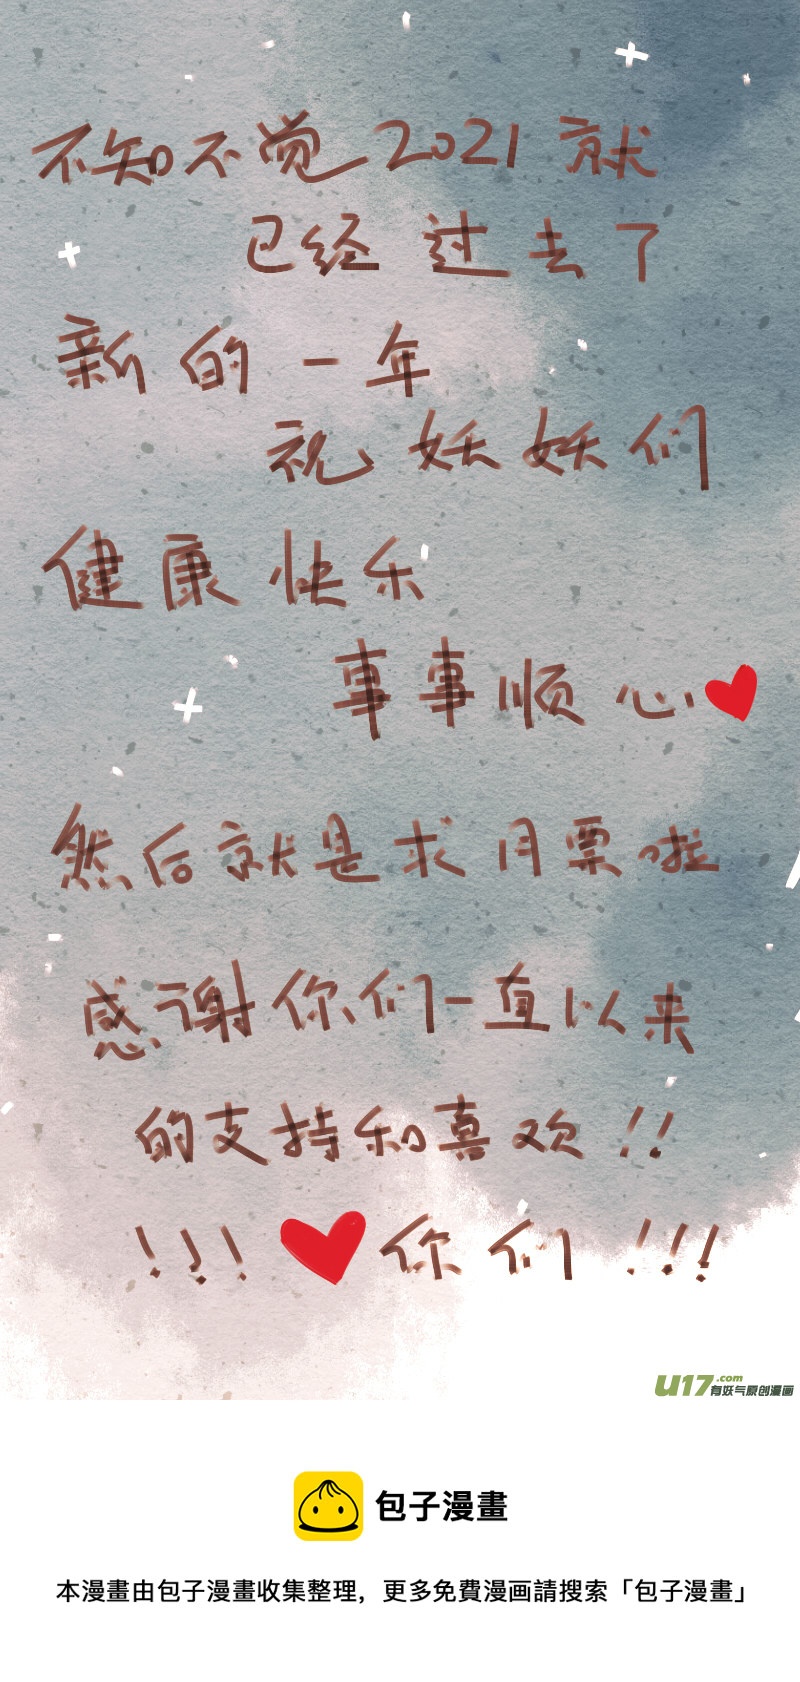 不知不觉2021就
已经过去了
新的一年
祝妖妖们
健康快乐
事事顺心
然后就是求月票啦
感谢你们一直以来
的支持和喜欢!!
!!!你们!!!
U17.com
有妖气原创漫画
包子漫畫
本漫畫由包子漫畫收集整理，更多免費漫画請搜索「包子漫畫」